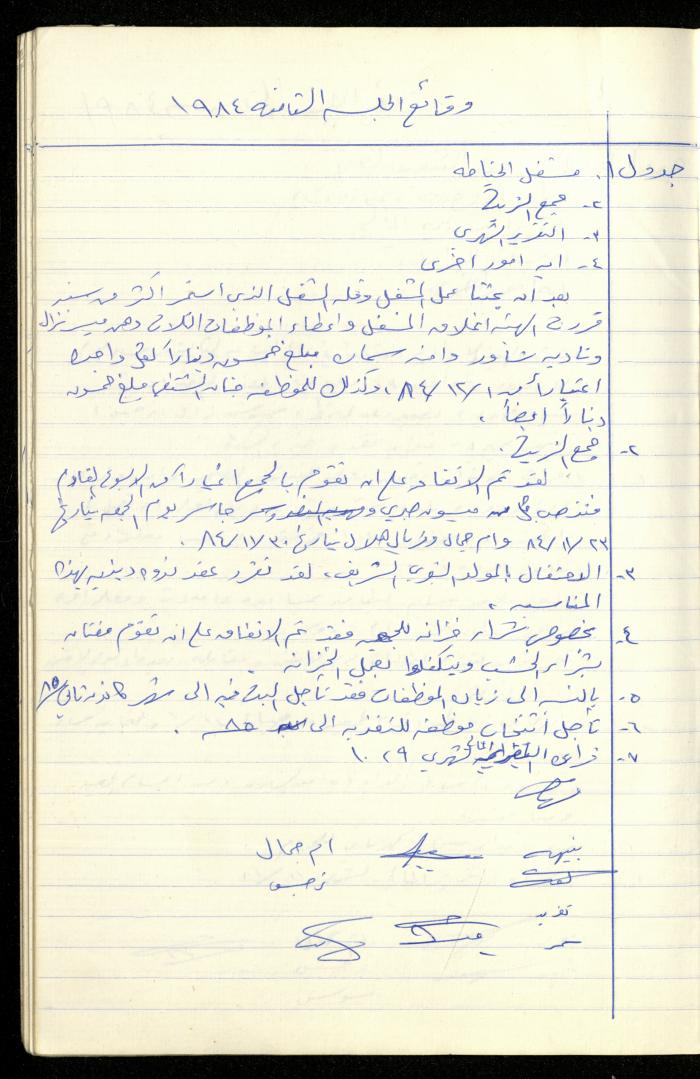 وقائع الجلسه الثامنه ١٩٨٤
جدول ١. مشغل الخياطه
٢- مجمع الزيت
٣- التقرير الشهري
٤- ايه امور اخرى
بعد أن بحثنا عمل المشغل وقله الشغل الذي استمر اكثر من سنه
قررت الهيئه اغلاق المشغل واعطاء الموظفات الثلاث وهن ميسر نزال
وناديه شاور وامنه سمان مبلغ خمسون ديناراً لكل واحده
اعتباراً من ٨٤/١٢/١، وكذلك للموظفه حنان الشنطي مبلغ خمسون
ديناراً ايضاً.
٢- مجمع الزيت.
لقد تم الاتفاق على ان نقوم بالجمع اعتباراً من الاسبوع القادم
فتذهب ميسون صبري و جاسر يوم الجمعه بتاريخ
٨٤/١١/٢٣ وام جمال وفريال هلال بتاريخ ٨٤/١١/٣٠.
٣- الاحتفال بالمولد النبوي الشريف، لقد تقرر عقد ندوه دينيه بهذه
المناسبه.
٤- بخصوص شراء خزانه للجمعيه فقد تم الاتفاق على ان تقوم
بشراء الخشب ويتكفلوا بعمل الخزانه.
٥- بالنسبه الى زيادة الموظفات فقد تأجل البت فيه الى شهر كانون ثاني ٨٥
٦- تأجل انتخاب موظفه للتغذيه الى ٨٥.
٧- قراءة التقرير المالي لشهري ٩ و ١٠
نبيهه
ام جمال
تغريد
سمر